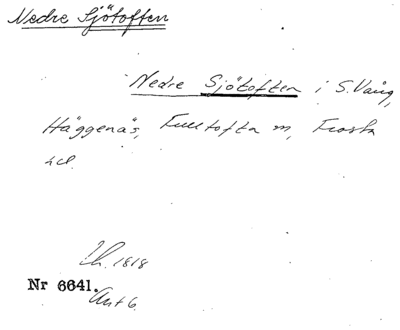 Nedre Sjötoften
Nedre Sjötoften i S. Vång,
Häggenäs, Fulltofta m, Frosta
hd.
Lh. 1818
Nr 6641.
Avt 6.